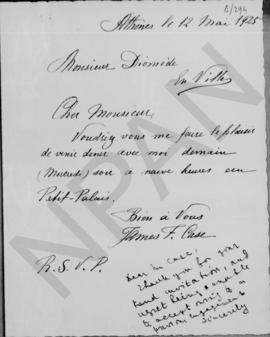 B/294
Athènes le 12 Mai 1925
Monsieur Diomède
En Ville
Cher Monsieur,
Voudriez vous me faire le plaisir
de venir diner avec moi demain
(Mercredi) soir à neuve heures au
Petit-Palais.
Bien à Vous
James F. Case
R.S.V.P.
Dear Mr Case,
Thank you for your
kind invitation, and
regret being unable
to accept owing to a
previous engagement
Sincerely
NPAN